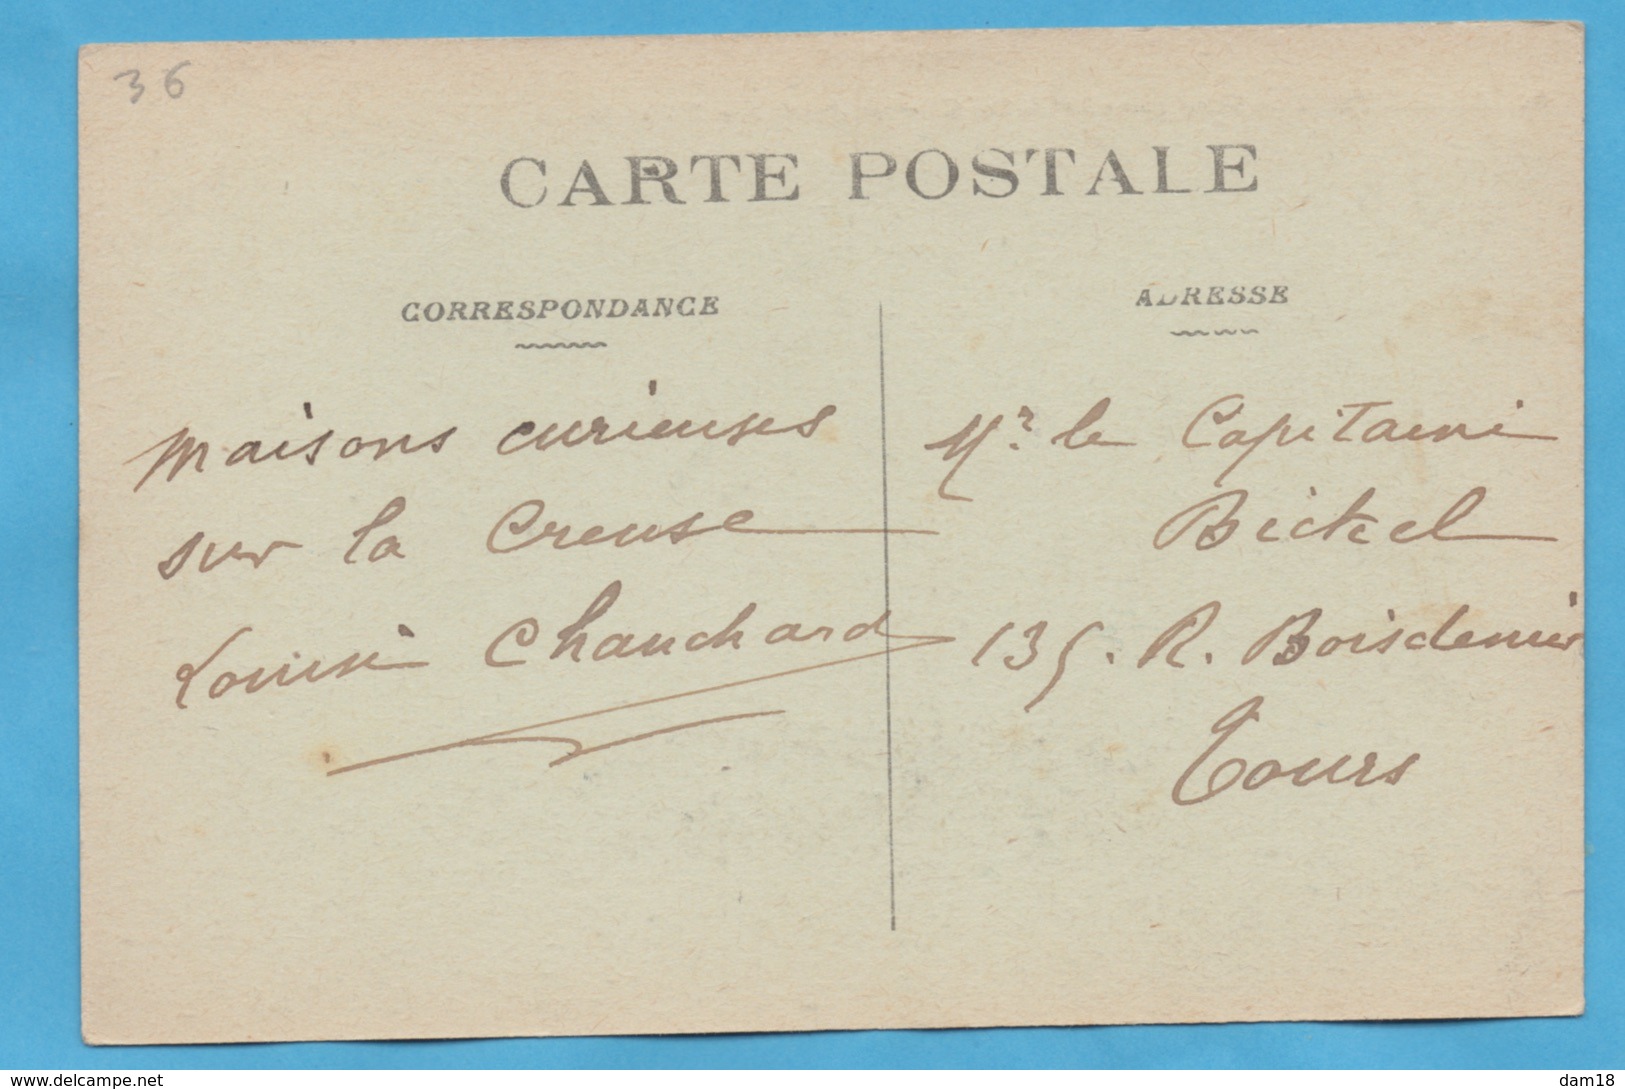 36
CARTE POSTALE
CORRESPONDANCE
ADRESSE
Maisons curieuses
sur la Creuse
Louise Chauchard
Mr le Capitaine
Bickel
135. R. Boisdenier
Tours
www.delcampe.net
dam18